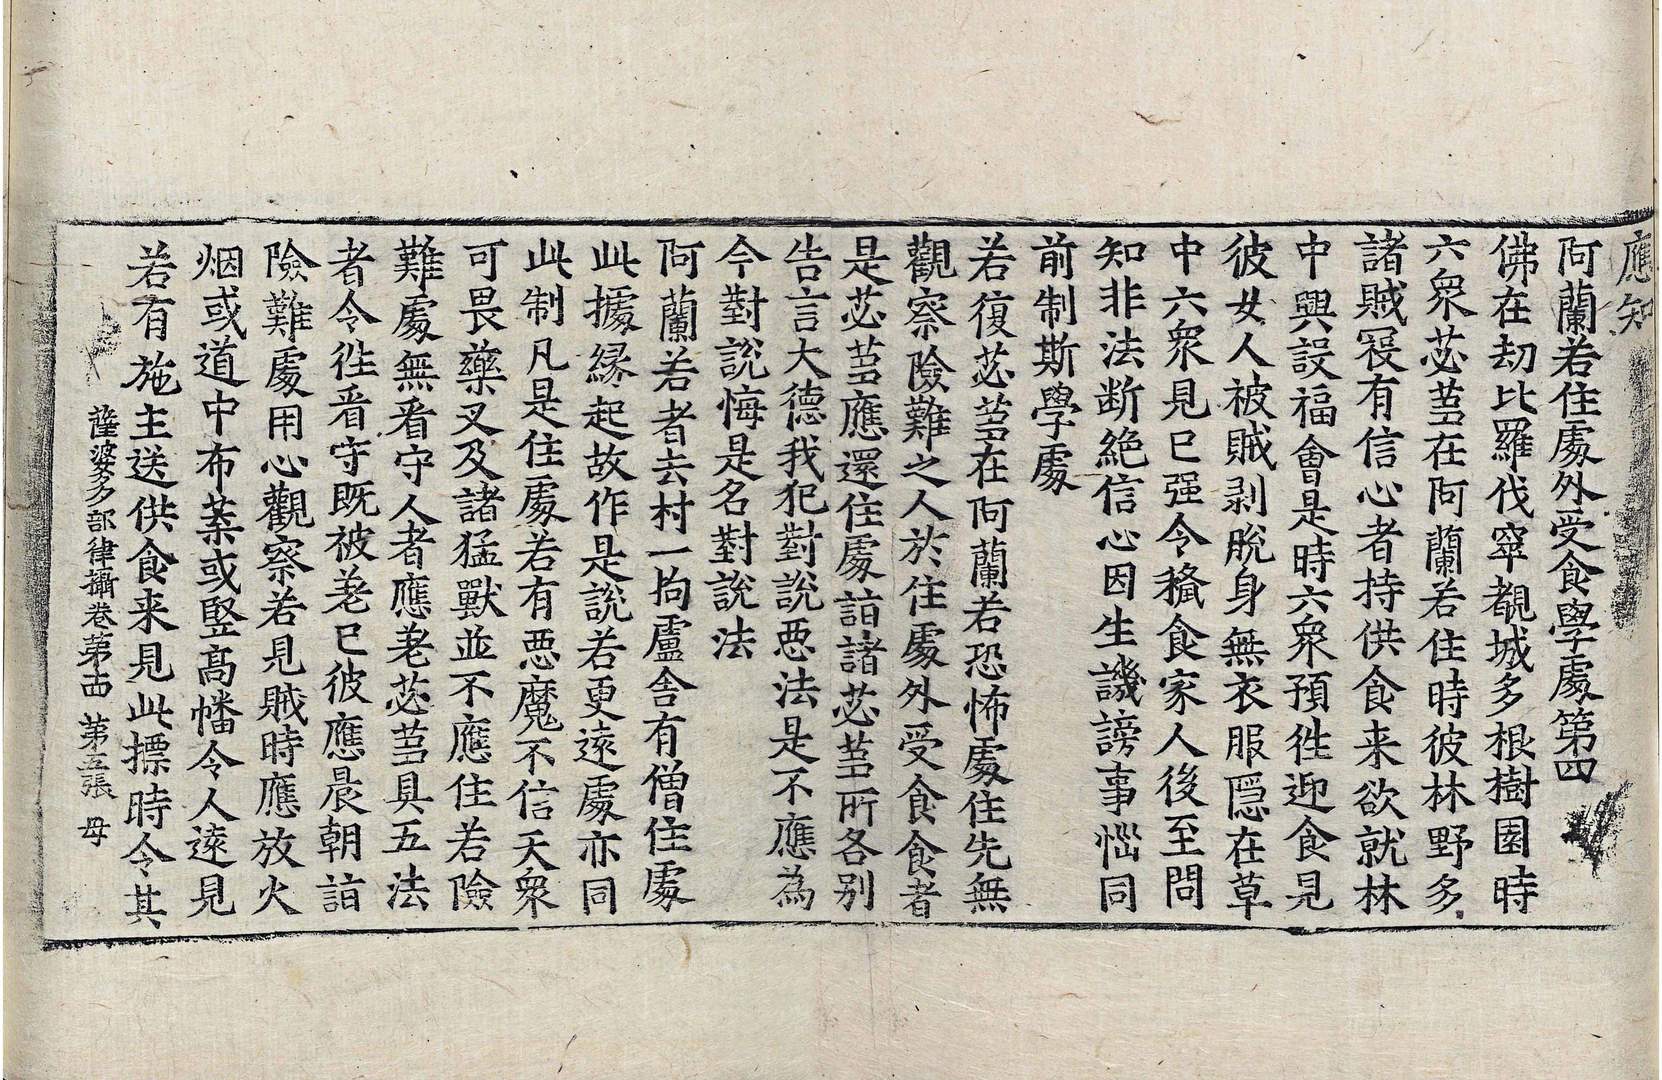 應知
阿蘭若住處外受食學處第四
佛在劫比羅伐窣覩城多根樹園時
六衆苾芻在阿蘭若住時彼林野多
諸賊寇有信心者持供食来欲就林
中興設福會是時六衆預徃迎食見
彼女人被賊剥脫身無衣服隱在草
中六衆見已强令授食家人後至問
知非法斷絶信心因生譏謗事惱同
前制斯學處
若復苾芻在阿蘭若恐怖處住先無
觀察險難之人於住處外受食食者
是苾芻應還住處詣諸苾芻所各别
告言大德我犯對說惡法是不應為
今對說悔是名對說法
阿蘭若者去村一拘盧舍有僧住處
此據縁起故作是說若更遠處亦同
此制凡是住處若有惡魔不信天衆
可畏藥叉及諸猛獸並不應住若險
難處無看守人者應差苾芻具五法
者令徃看守既被差已彼應晨朝詣
險難處用心觀察若見賊時應放火
烟或道中布葉或竪高幡令人遠見
若有施主送供食来見此摽時令其
薩婆多部律攝卷第十四 第五張 母